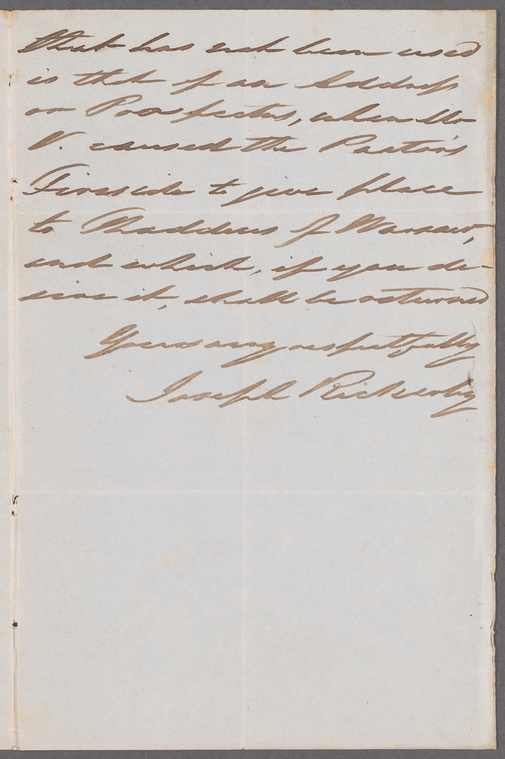 that has not been used
is that of an Address
or Prospectus, when Mr
V. caused the Pastor's
Fireside to give place
to Thaddeus of Warsaw,
and which, if you de-
sire it, shall be returned
Yours very respectfully
Joseph Rickerby